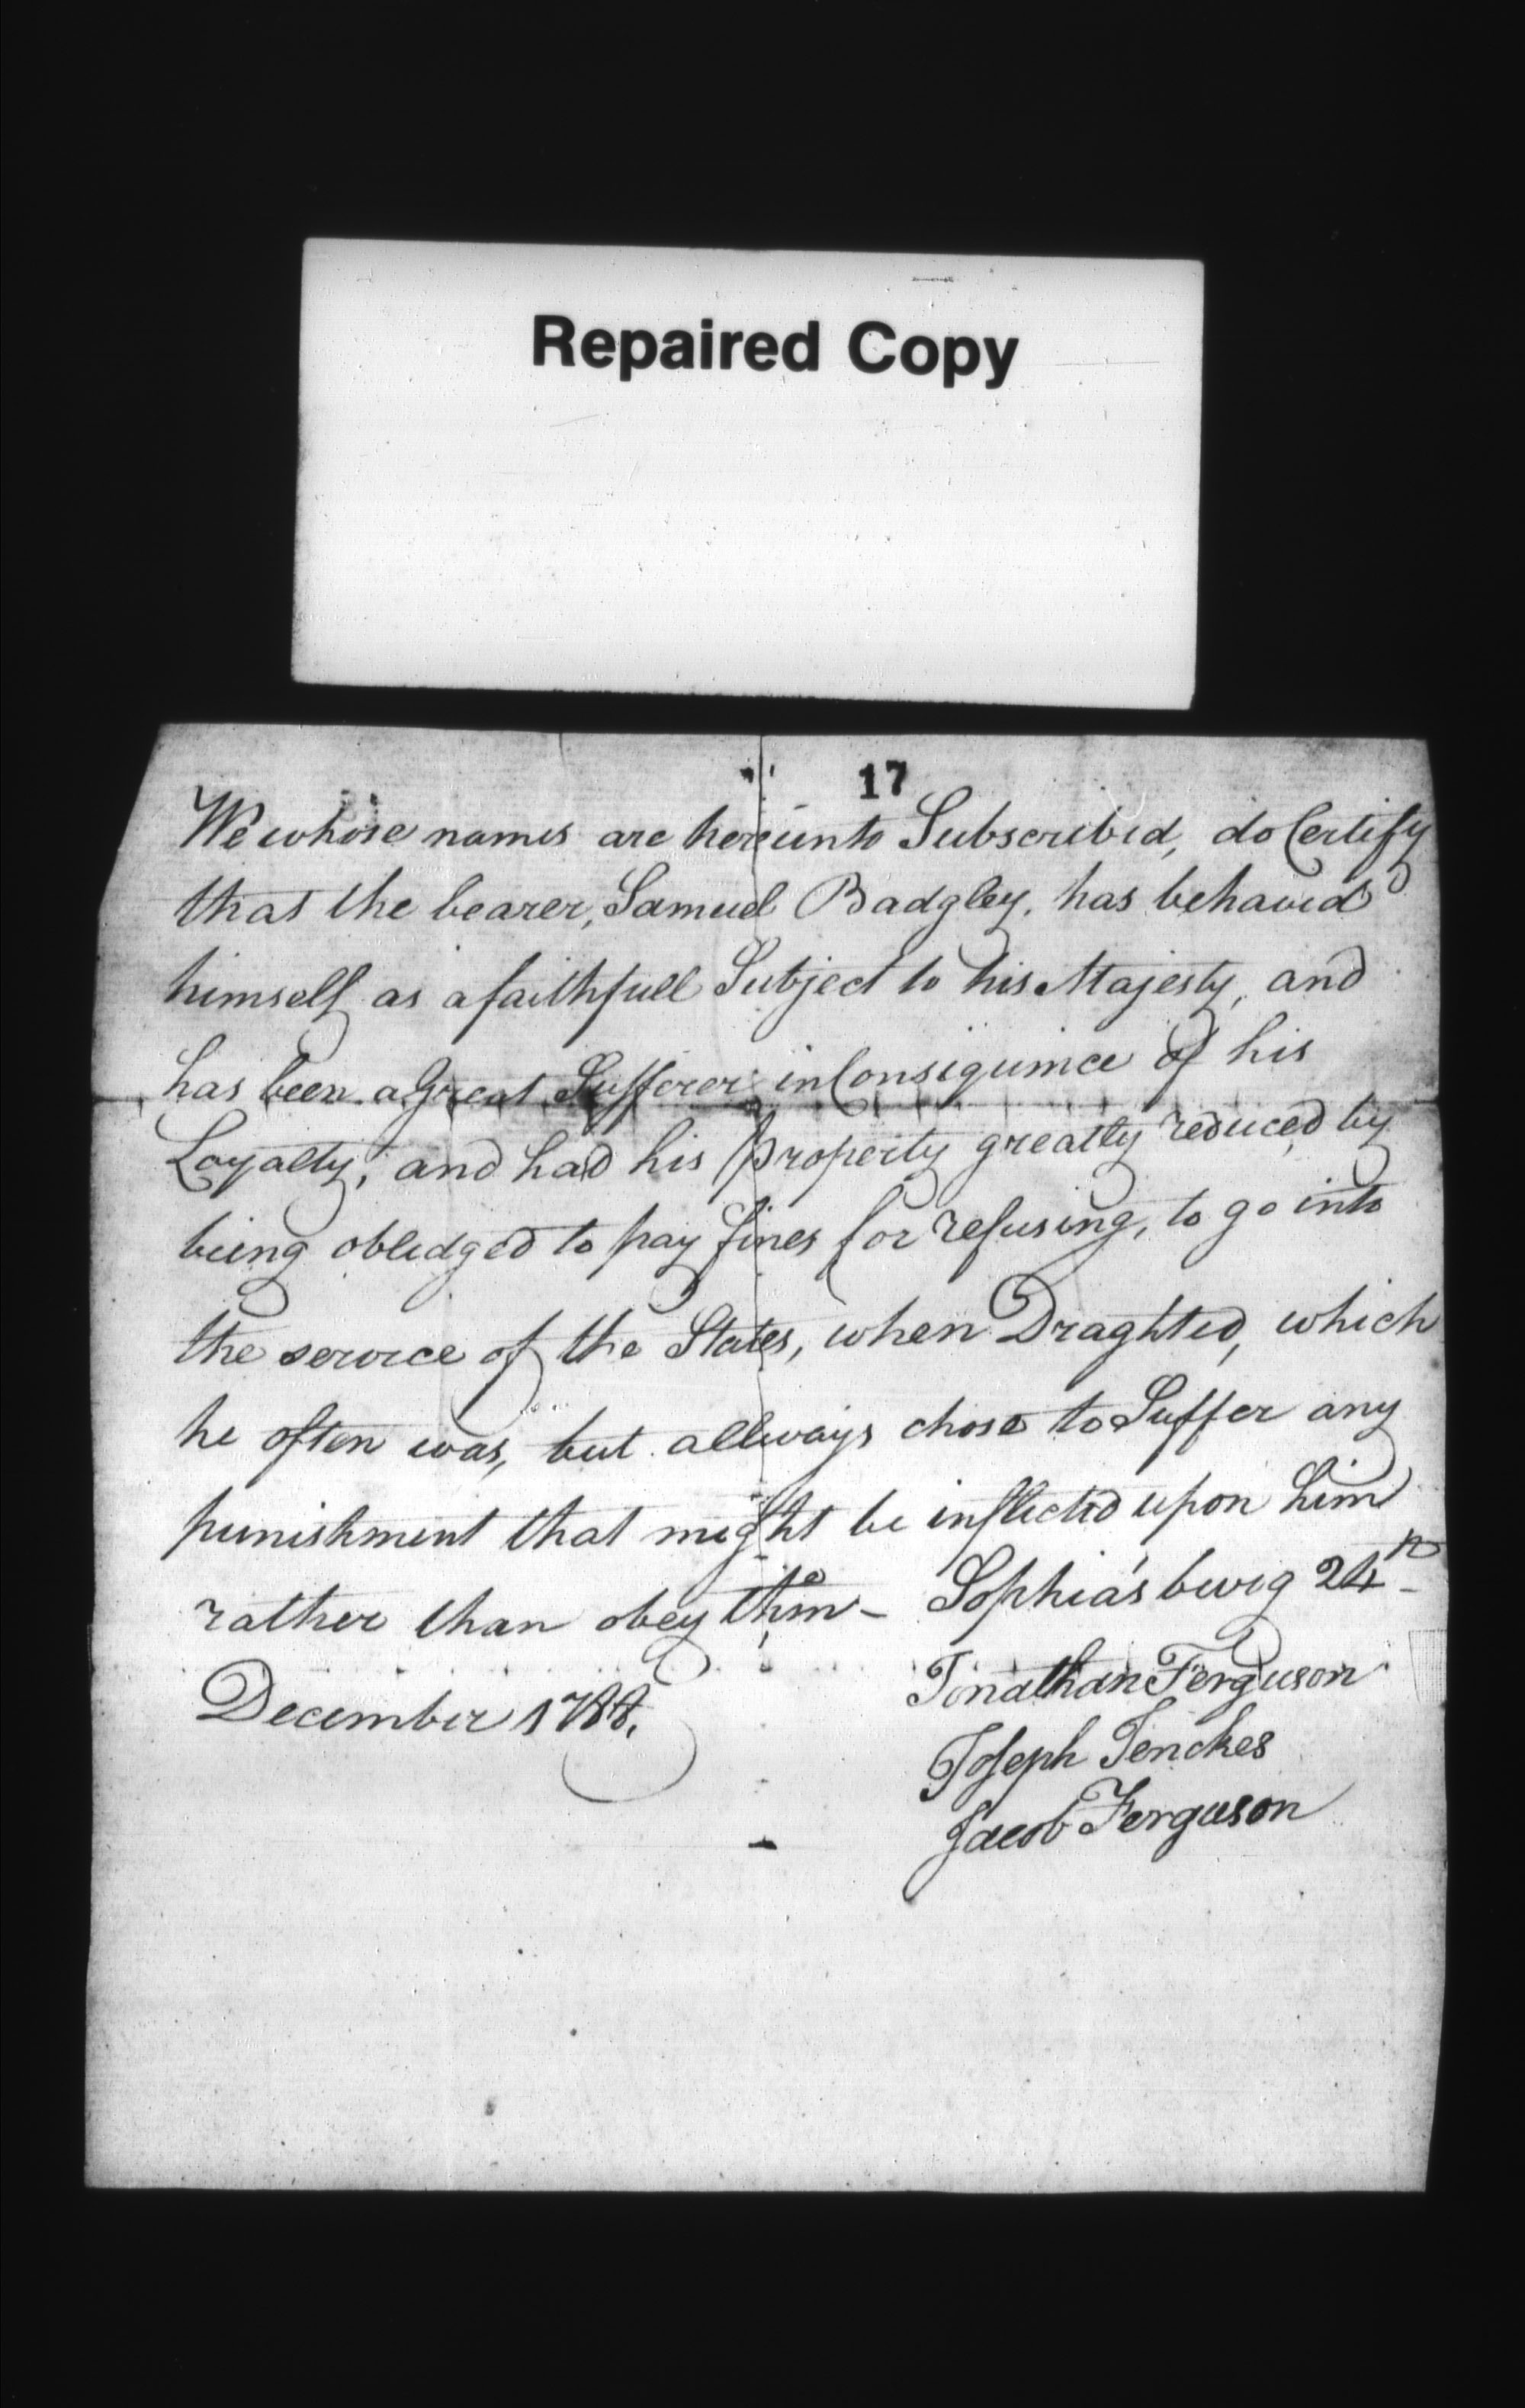 Repaired Copy
17
We whose names are hereunto Subscribed, do Certify
that the bearer, Samuel Badgley, has behaved
himself as a faithfull Subject to his Majesty, and
has been a Great Sufferer in Consiquince of his
Loyalty; and had his property greatly reduced, by
being obledged to pay fines for refusing, to go into
the service of the States, when Draghted, which
he often was, but allways chose to Suffer any
punishment that might be inflected upon him
rather than obey them – Sophia's burg 24th
December 1788.
Jonathan Ferguson
Joseph Jenckes
Jacob Ferguson